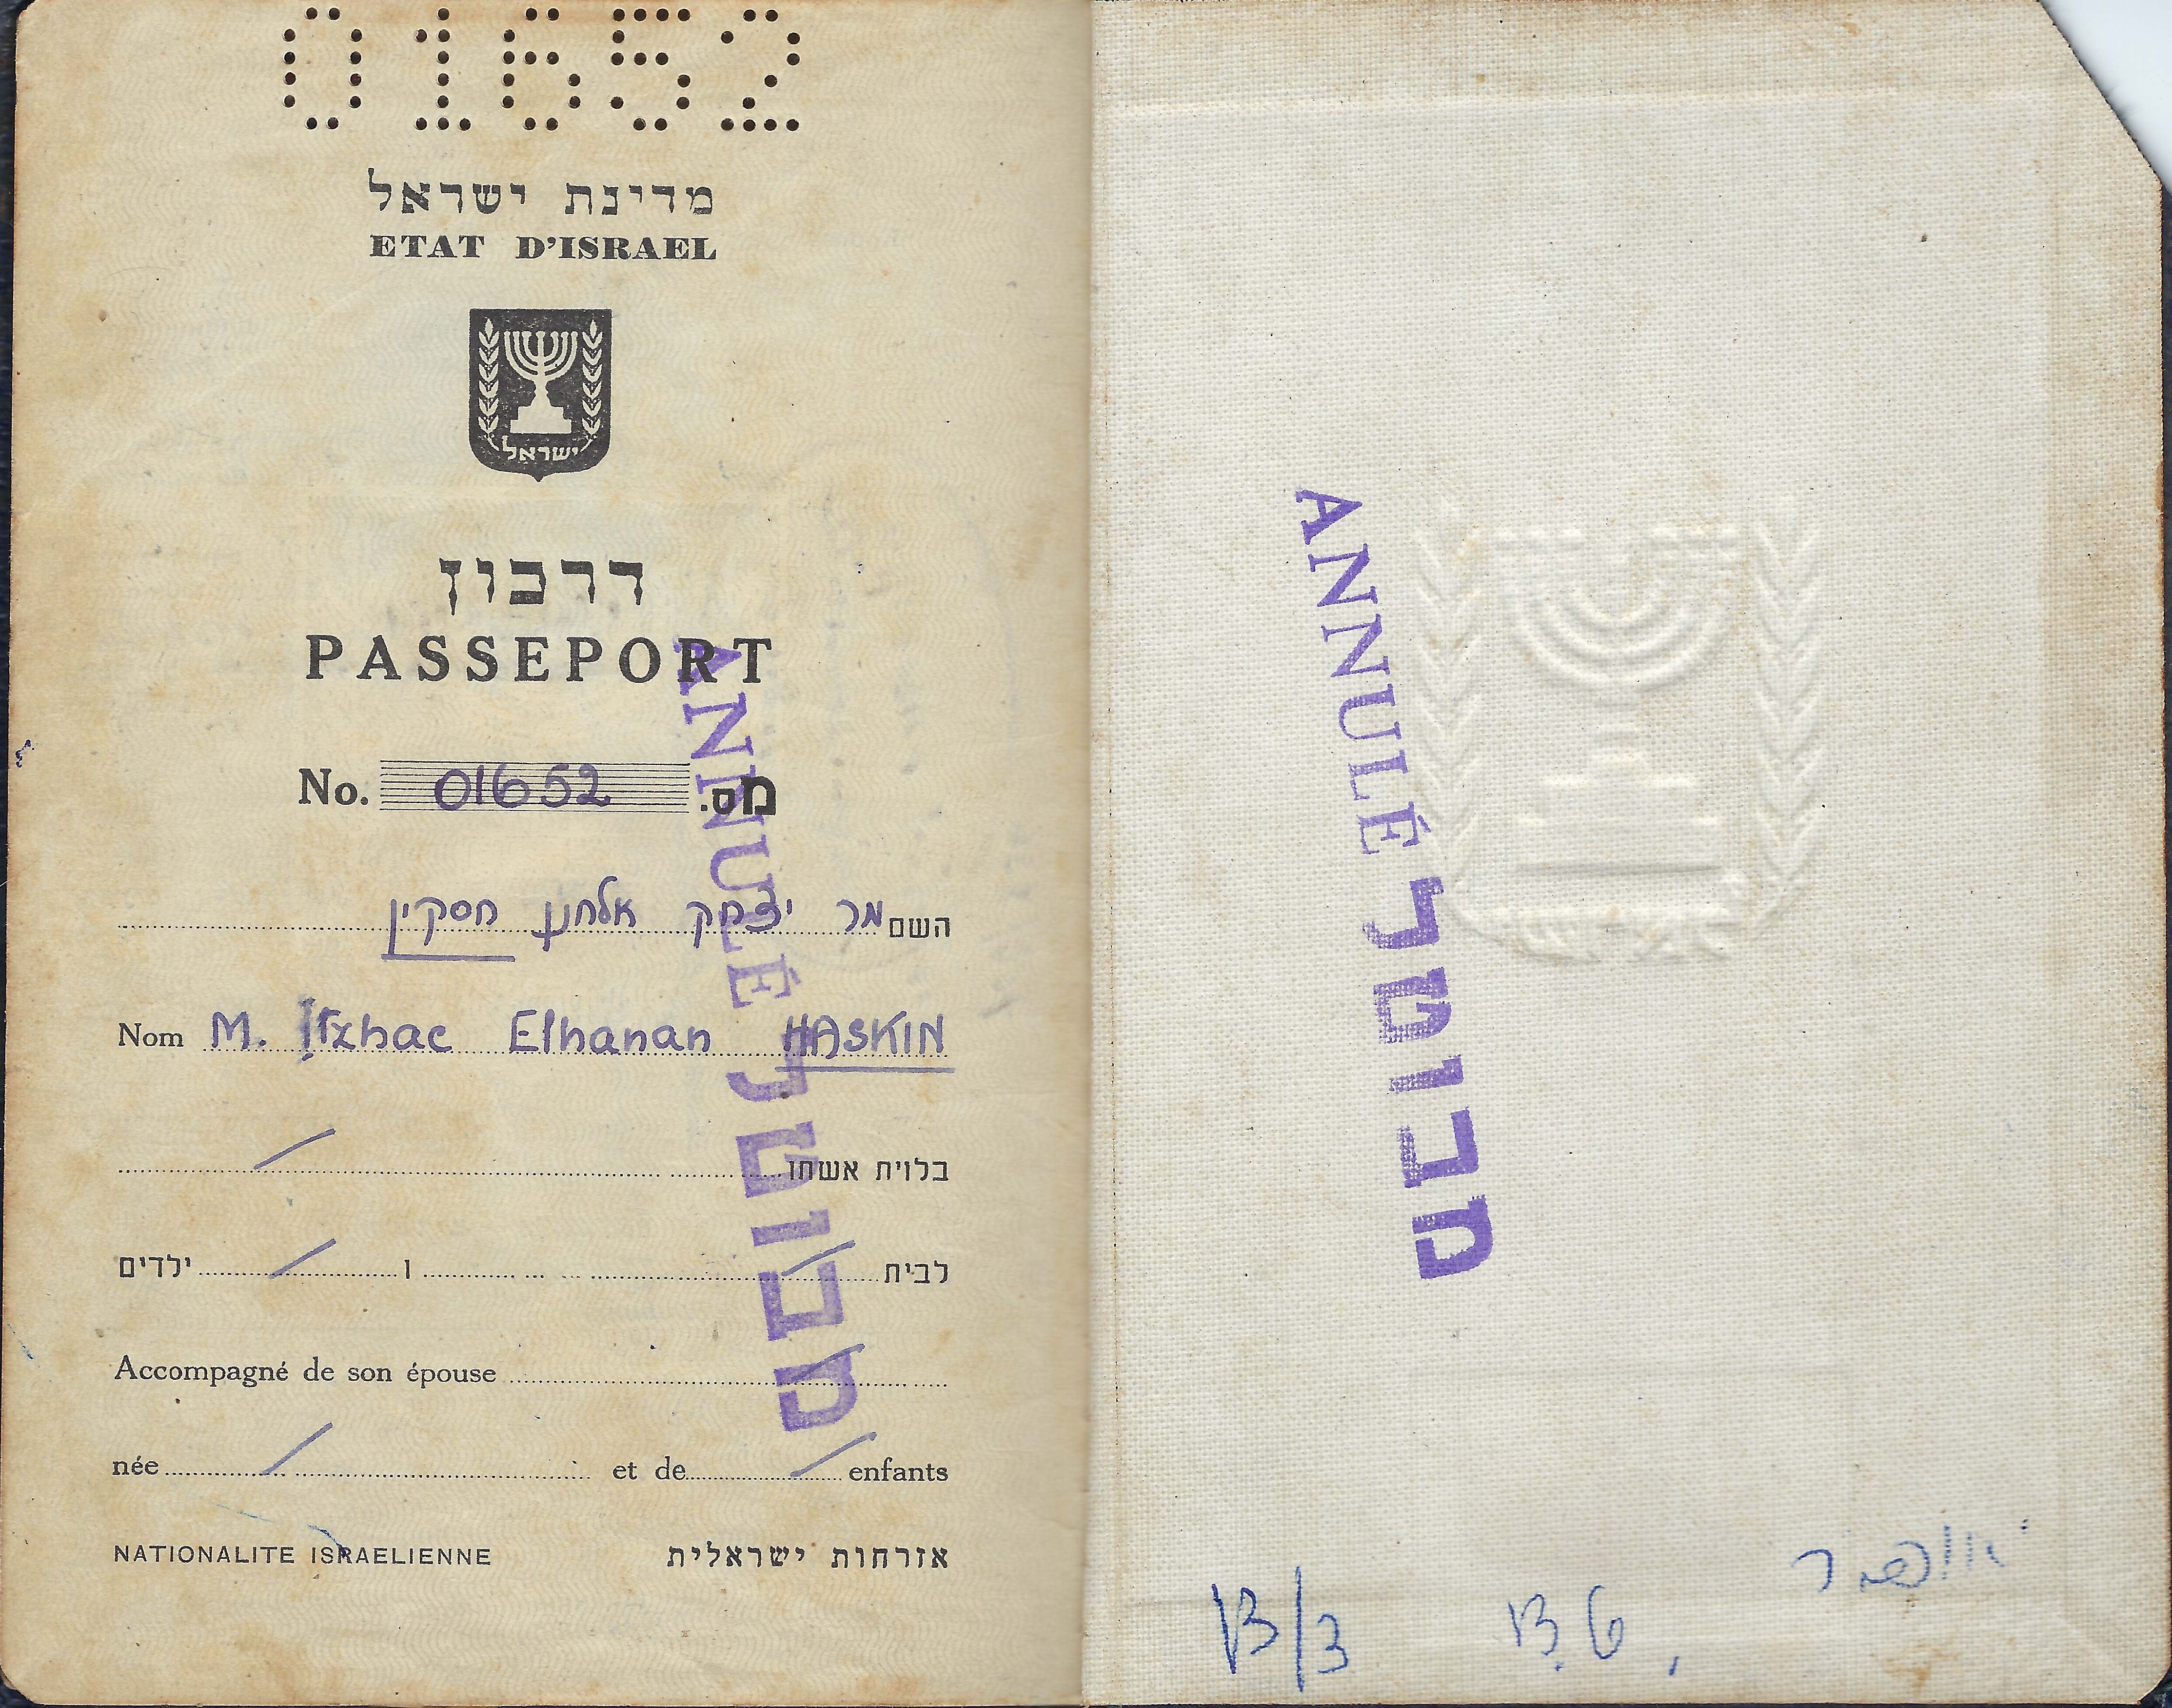 01652
מדינת ישראל
ETAT D'ISRAEL
ישראל
דרכון
PASSEPORT
No. 01652 מס.
השם מר יצחק אלחנן חסקין
Nom M. Itzhac Elhanan HASKIN
בלוית אשתו
לבית ו ילדים
Accompagné de son épouse
née et de enfants
NATIONALITE ISRAELIENNE אזרחות ישראלית
ANNULÉ מבוטל
ANNULÉ מבוטל
ישראל